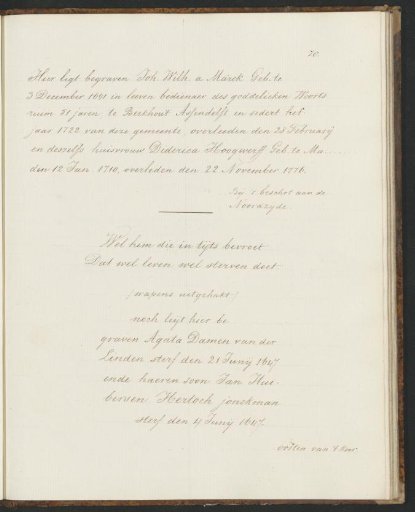 70.
Hier ligt begraven Joh. Wilh. a Marck Geb. te
3 December 1691 in leeven bedienaer des goddelicken Woorts
ruim 21 jaren te Berkhout Assendelft en sedert het
jaar 1722 van deze gemeente, overleeden den 28 February
en desselfs huisvrouw Dederica Hoogwerff Geb. te Ma
den 12 Jan. 1710, overleden den 22 November 1776.
Bij 't beschot aan de
Noordzyde.
Wel hem die in tijts bevroet
Dat wel leven wel sterven doet
(wapens uitgehakt)
noch leijt hier be
graven Agata Damen van der
Linden sterf den 21 Junij 1647
ende haeren soon Jan Hui
berven Hertoch jonckman
sterf den 4 Junij 1647.
van 't Koor